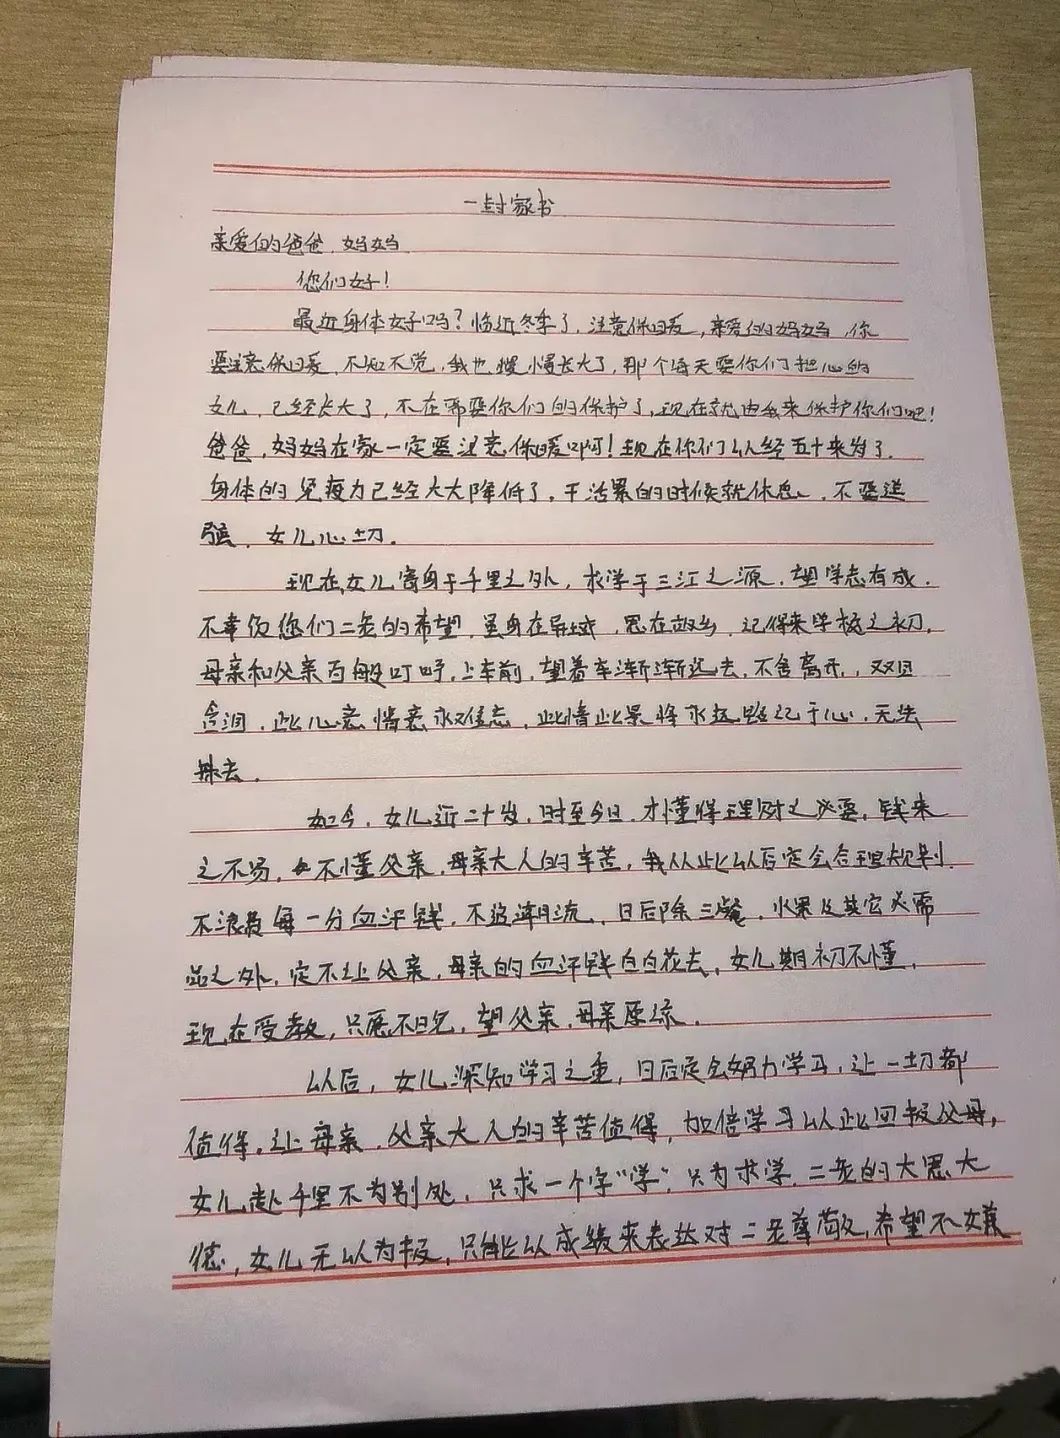 一封家书
亲爱的爸爸、妈妈
您们好！
最近身体好吗？临近冬季了，注意保暖，亲爱的妈妈，你
要注意保暖，不知不觉，我也慢慢长大了，那个每天要你们担心的
女儿，已经长大了，不在需要你们的保护了，现在就由我来保护你们吧！
爸爸，妈妈在家一定要注意保暖啊！现在你们以经五十来岁了，
身体的免疫力已经大大降低了，干活累的时候就休息，不要逞
强，女儿心切。
现在女儿寄身于千里之外，求学于三江之源，望学志有成，
不辜负您们二老的希望，虽身在异域，思在故乡，记得来学校之初，
母亲和父亲百般叮咛，上车前，望着车渐渐远去，不舍离开，双目
含泪，此儿意情意永难忘，此情此景将永远铭记于心，无法
抹去。
如今，女儿近二十岁，时至今日，才懂得理财之必要，钱来
之不易，不懂父亲，母亲大人的辛苦，我从此以后定会合理规划，
不浪费每一分血汗钱，不追潮流，日后除三餐，水果及其它必需
品之外，定不让父亲，母亲的血汗钱白白花去，女儿期初不懂，
现在受教，只愿不晚，望父亲，母亲原谅。
以后，女儿深知学习之重，日后定会努力学习，让一切都
值得，让母亲、父亲大人的辛苦值得，加倍学习以此回报父母，
女儿赴千里不为别处，只求一个字“学”，只为求学，二老的大恩大
德，女儿无以为报，只能以成绩来表达对二老尊敬，希望不嫌